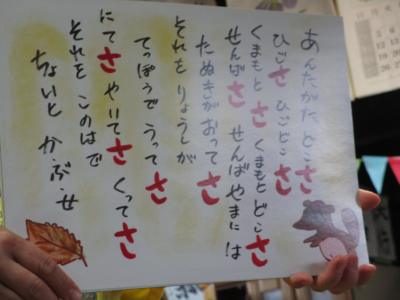 あんたがた どこさ
ひごさ ひごどこさ
くまもとさ くまもとどこさ
せんばさ せんばやまには
たぬきがおってさ
それを りょうしが
てっぽうで うってさ
にてさ やいてさ くってさ
それを このはで
ちょいと か・ぶ・せ